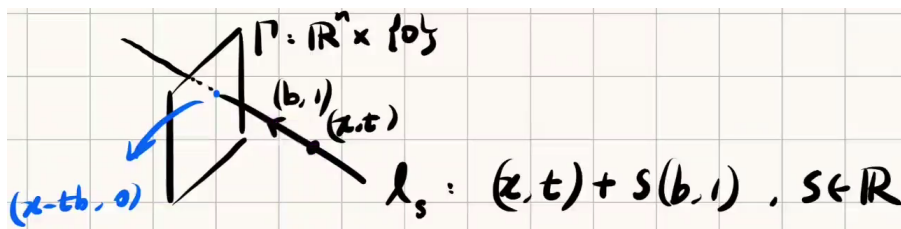 Γ: ℝⁿ × {0}
(b, 1)
(x, t)
(x-tb, 0)
lₛ : (x, t) + s(b, 1) , s∈ℝ